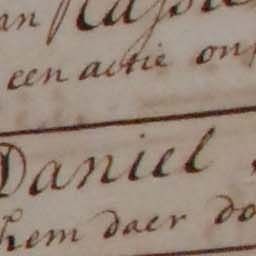 an
een actie on
Daniel
hem daer do